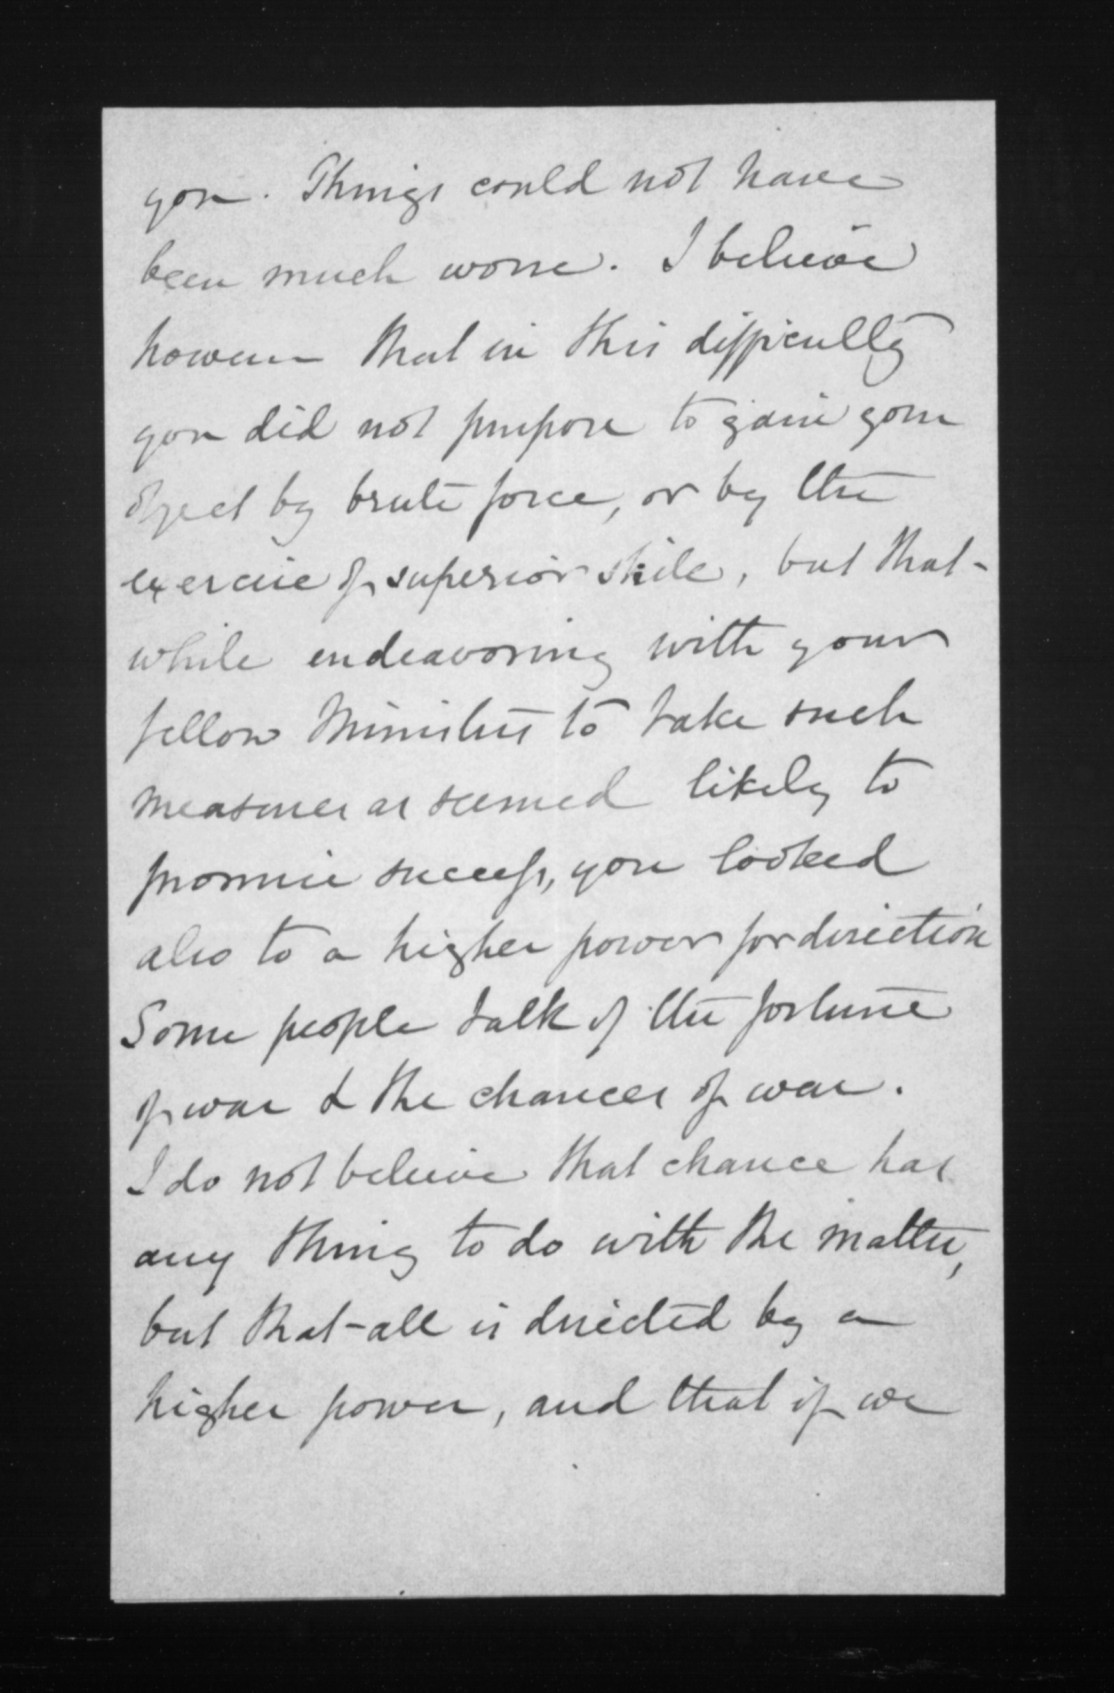 you. Things could not have
been much worse. I believe
however that in this difficulty
you did not purpose to gain your
object by brute force, or by the
exercise of superior skile, but that
while endeavoring with your
fellow Ministers to take such
measures as seemed likely to
promise success, you looked
also to a higher power for direction
Some people talk of the fortune
of war & the chances of war.
I do not believe that chance has
any thing to do with the matter,
but that all is directed by a
higher power, and that if we